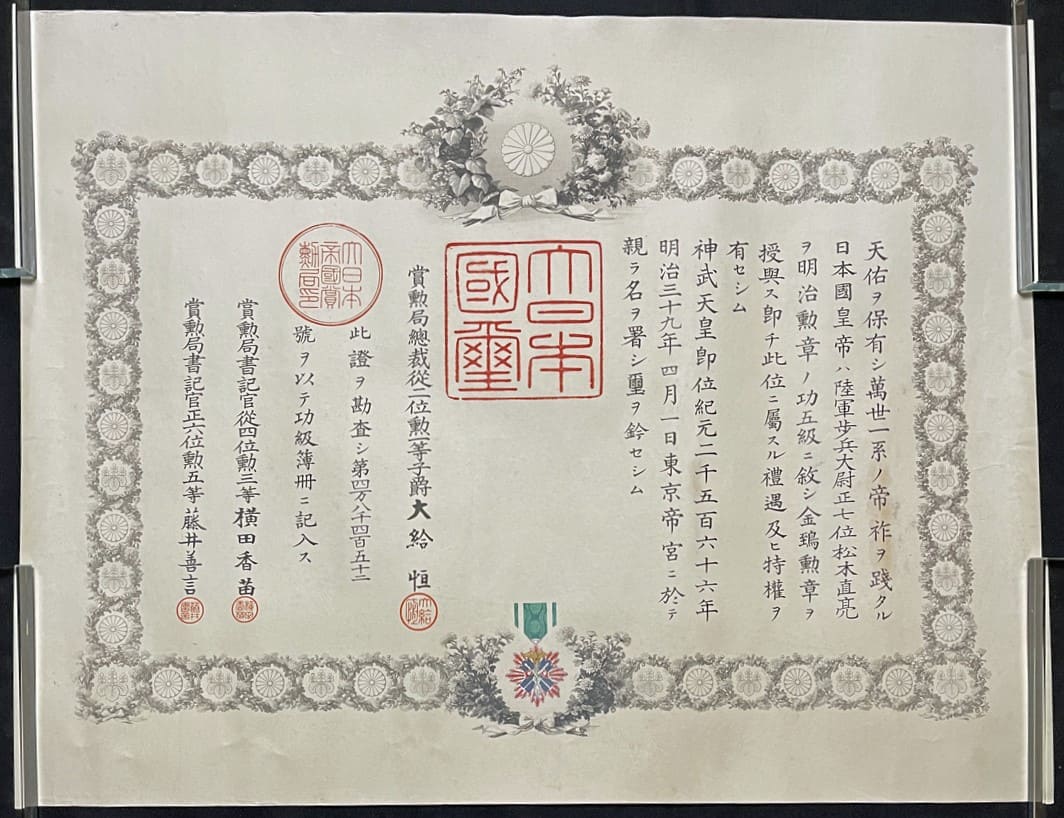 天佑ヲ保有シ萬世一系ノ帝祚ヲ踐タル
日本國皇帝ハ陸軍步兵大尉正七位松木直亮
ヲ明治勲章ノ功五級ニ敘シ金鵄勲章ヲ
授與ス即チ此位ニ屬スル禮遇及ヒ特權ヲ
有セシム
神武天皇即位紀元二千五百六十六年
明治三十九年四月一日東京帝宮ニ於テ
親ラ名ヲ署シ璽ヲ鈐セシム
大日本
國璽
賞勲局總裁從二位勲一等子爵大給 恒
大日本
帝國賞
勲局印
此證ヲ勘査シ第四万八千四百五十二
號ヲ以テ功級簿冊ニ記入ス
賞勲局書記官從四位勲三等橫田香苗
賞勲局書記官正六位勲五等藤井善言